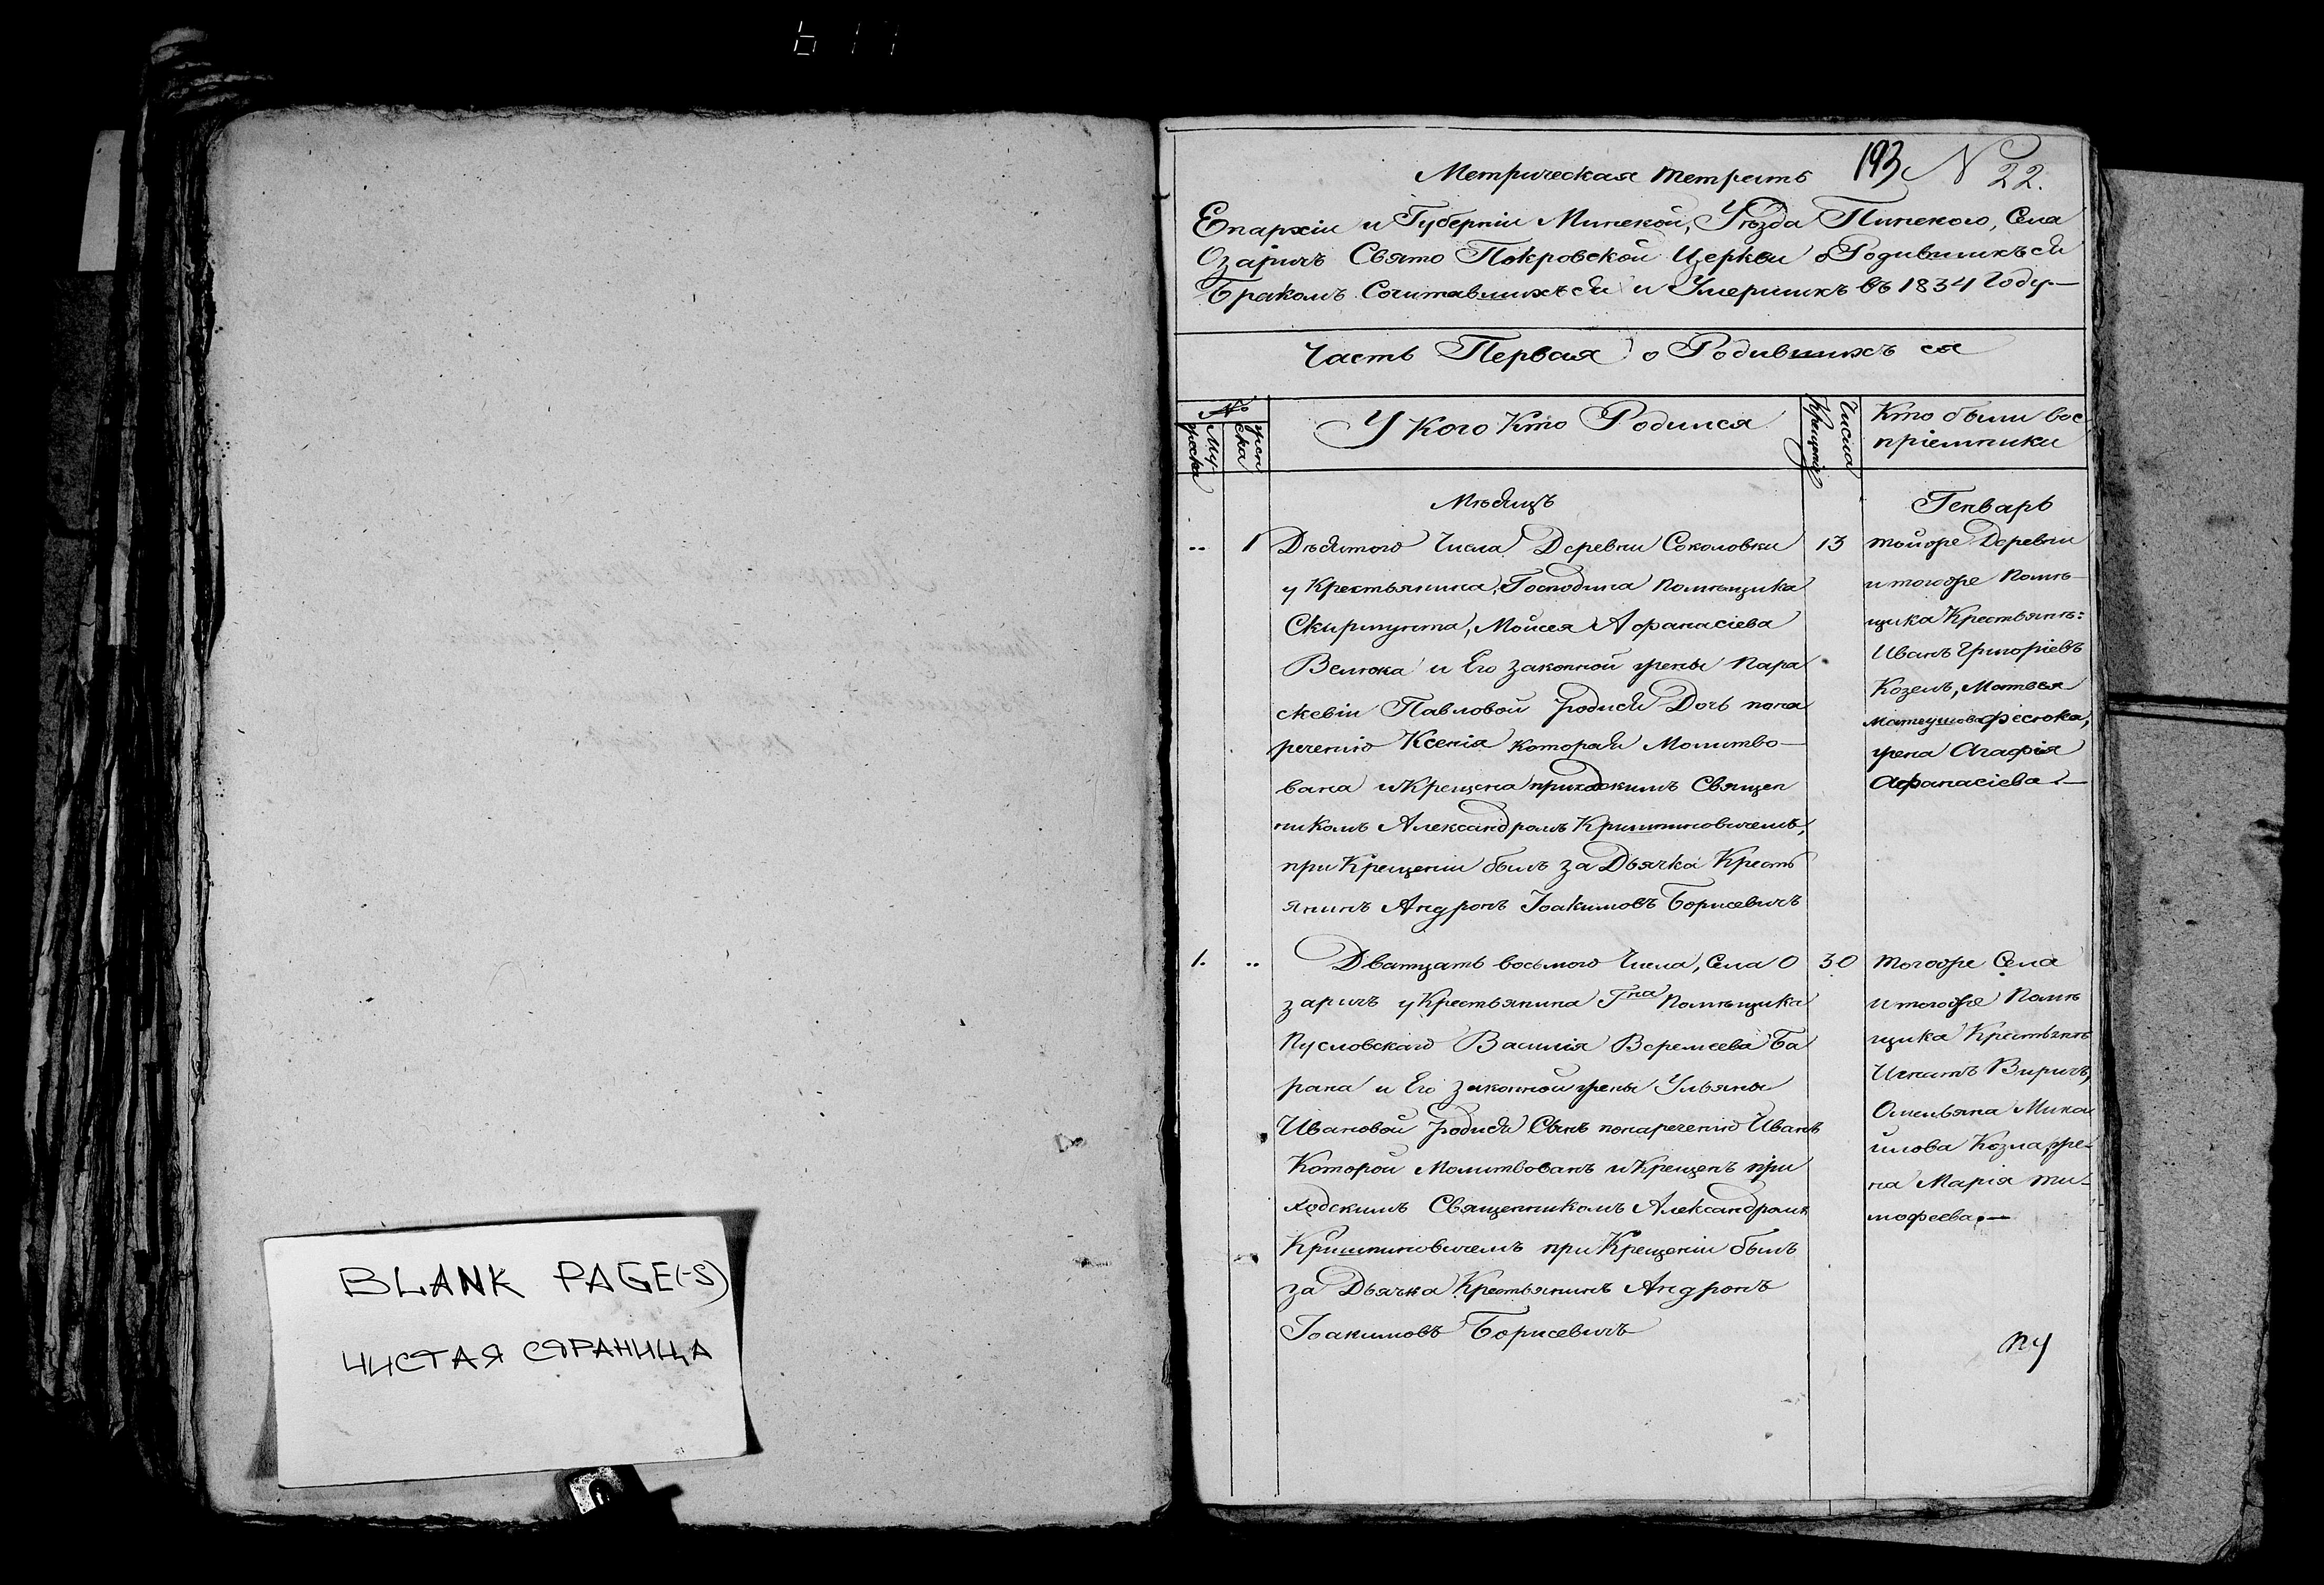 BLANK PAGE(-S)
ЧИСТАЯ СТРАНИЦА
193 N 22.
Метрическая тетрать
Епархіи и Губерніи Минской, Уѣзда Пинского, Села
Озаричъ Свято Покровской Церкви о Родившихъся
Бракомъ Сочитавшихъся и Умершихъ въ 1834 Году.—
Часть Первая о Родившихъ ся
№
Му-
жеска
жен
ска
У кого Кто Родился
Числа
Крещенія
Кто были вос
пріемники
Мѣсяцъ
Генварь
.. 1
Дѣсятого Числа Деревни Соколовки
у Крестьянина, Господина Помѣщика
Скирмунта, Мойсея Афанасіева
Велюка и Его законной жены Пара
скевіи Павловой родися Дочь пона
реченію Ксенія которая Молитво—
вана и Крещена приходскимъ Священ
никомъ Александромъ Кришпиновичемъ,
при Крещеніи былъ за Дьячка Кресть
янинъ Андронъ Іоакимовъ Борисевичъ
13
тойже Деревни
и тогоже Помѣ—
щика Крестьянѣ:
Иванъ Григоріевъ
Козелъ, Матвея
Матеушова Фесюка,
жена Агафія
Афанасіева.—
1. ..
Дватцать восьмого Числа, Села О
заричъ у Крестьянина Гна Помѣщика
Пусловскаго Василія Веремеева Ба
рана и Его законной жены Ульяны
Ивановой родися Сынъ понареченію Иванъ
Которой Молитвованъ и Крещенъ при
ходскимъ Священникомъ Александромъ
Кришпиновичемъ при Крещеніи былъ
за Дьячка Крестьянинъ Андронъ
Іоакимовъ Борисевичъ
30
тогоже Села
и тогоже Помѣ
щика Крестьянѣ
Игнатъ Виричъ,
Омельяна Миха
йлова Козла, же-
на Марія Ти-
мофеева.—